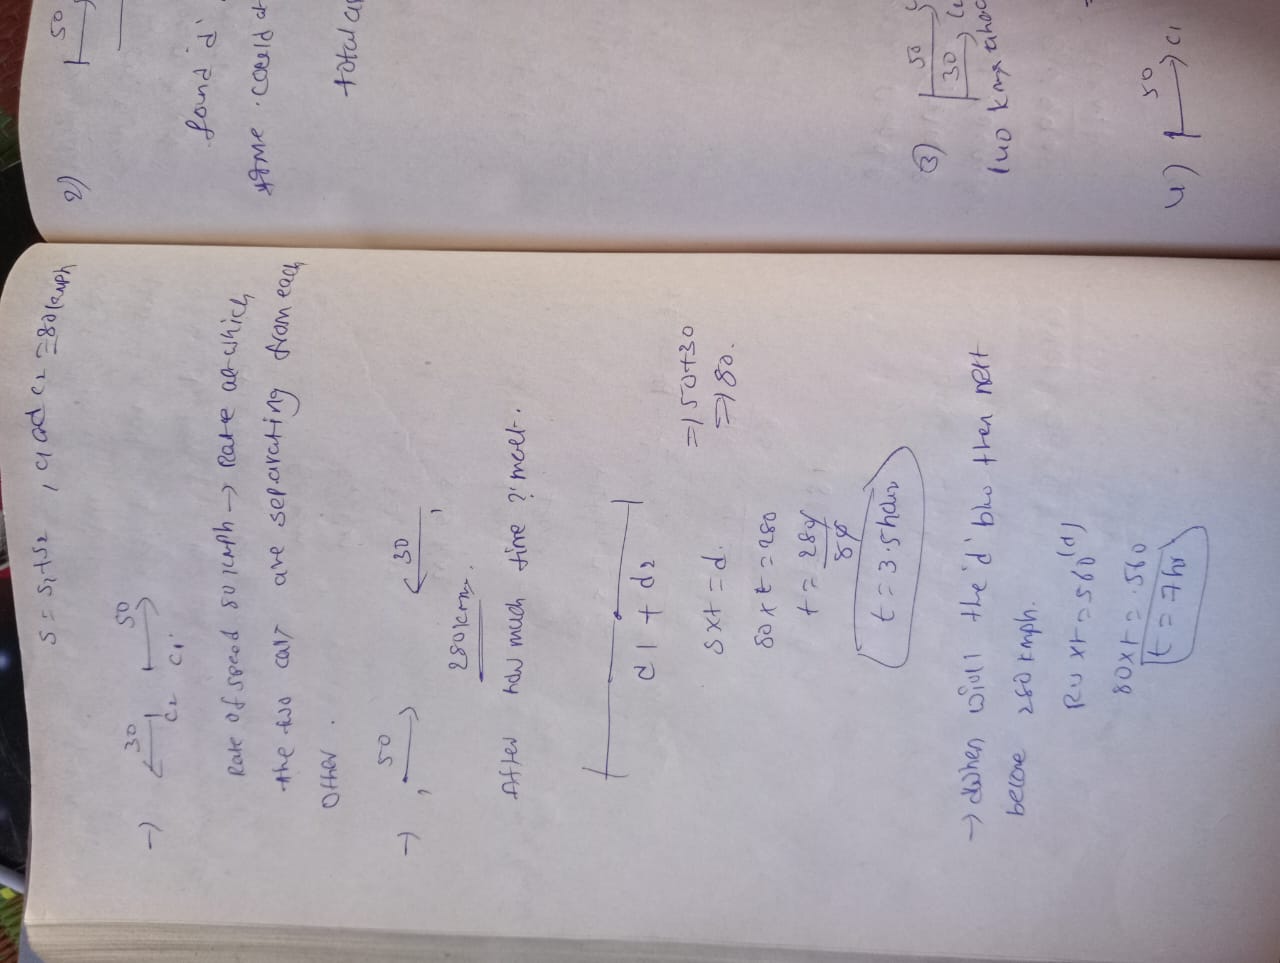 S = S1+S2 , c1 and c2 = 80 kmph
→) 30 50
c2 c1
Rate of speed 80 kmph → Rate at which
the two car are separating from each
other.
→) 50 30
280km.
After how much time ? meet.
d1 + d2
=) 50+30
=) 80.
S x t = d.
80 x t = 280
t = 280/80
t = 3.5 hour
→ When will the 'd' b/w then next
become 280 kmph.
RU x t = 560 (d)
80 x t = 560
t = 7 hr
2) 50
found 'd'
time could
total
3) 50
30
140 kmx ahea
4) 50 c1